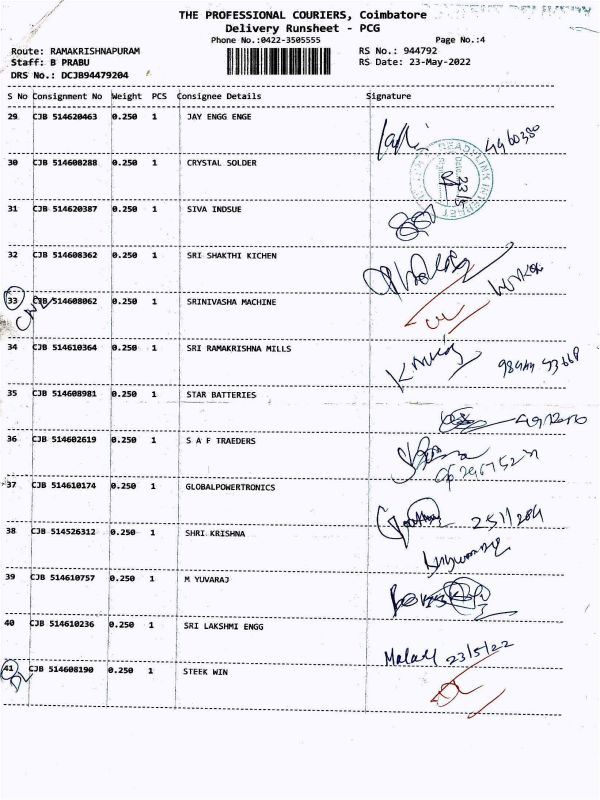 THE PROFESSIONAL COURIERS, Coimbatore
Delivery Runsheet - PCG
Phone No.:0422-3505555 Page No.:4
Route: RAMAKRISHNAPURAM RS No.: 944792
Staff: B PRABU RS Date: 23-May-2022
DRS No.: DCJB94479204
S No Consignment No Weight PCS Consignee Details Signature
29 CJB 514620463 0.250 1 JAY ENGG ENGE
30 CJB 514608288 0.250 1 CRYSTAL SOLDER
31 CJB 514620387 0.250 1 SIVA INDSUE
32 CJB 514608362 0.250 1 SRI SHAKTHI KICHEN
33 CJB 514608062 0.250 1 SRINIVASHA MACHINE
34 CJB 514610364 0.250 1 SRI RAMAKRISHNA MILLS
35 CJB 514608981 0.250 1 STAR BATTERIES
36 CJB 514602619 0.250 1 S A F TRAEDERS
37 CJB 514610174 0.250 1 GLOBALPOWERTRONICS
38 CJB 514526312 0.250 1 SHRI KRISHNA
39 CJB 514610757 0.250 1 M YUVARAJ
40 CJB 514610236 0.250 1 SRI LAKSHMI ENGG
23/5/22
41 CJB 514608190 0.250 1 STEEK WIN